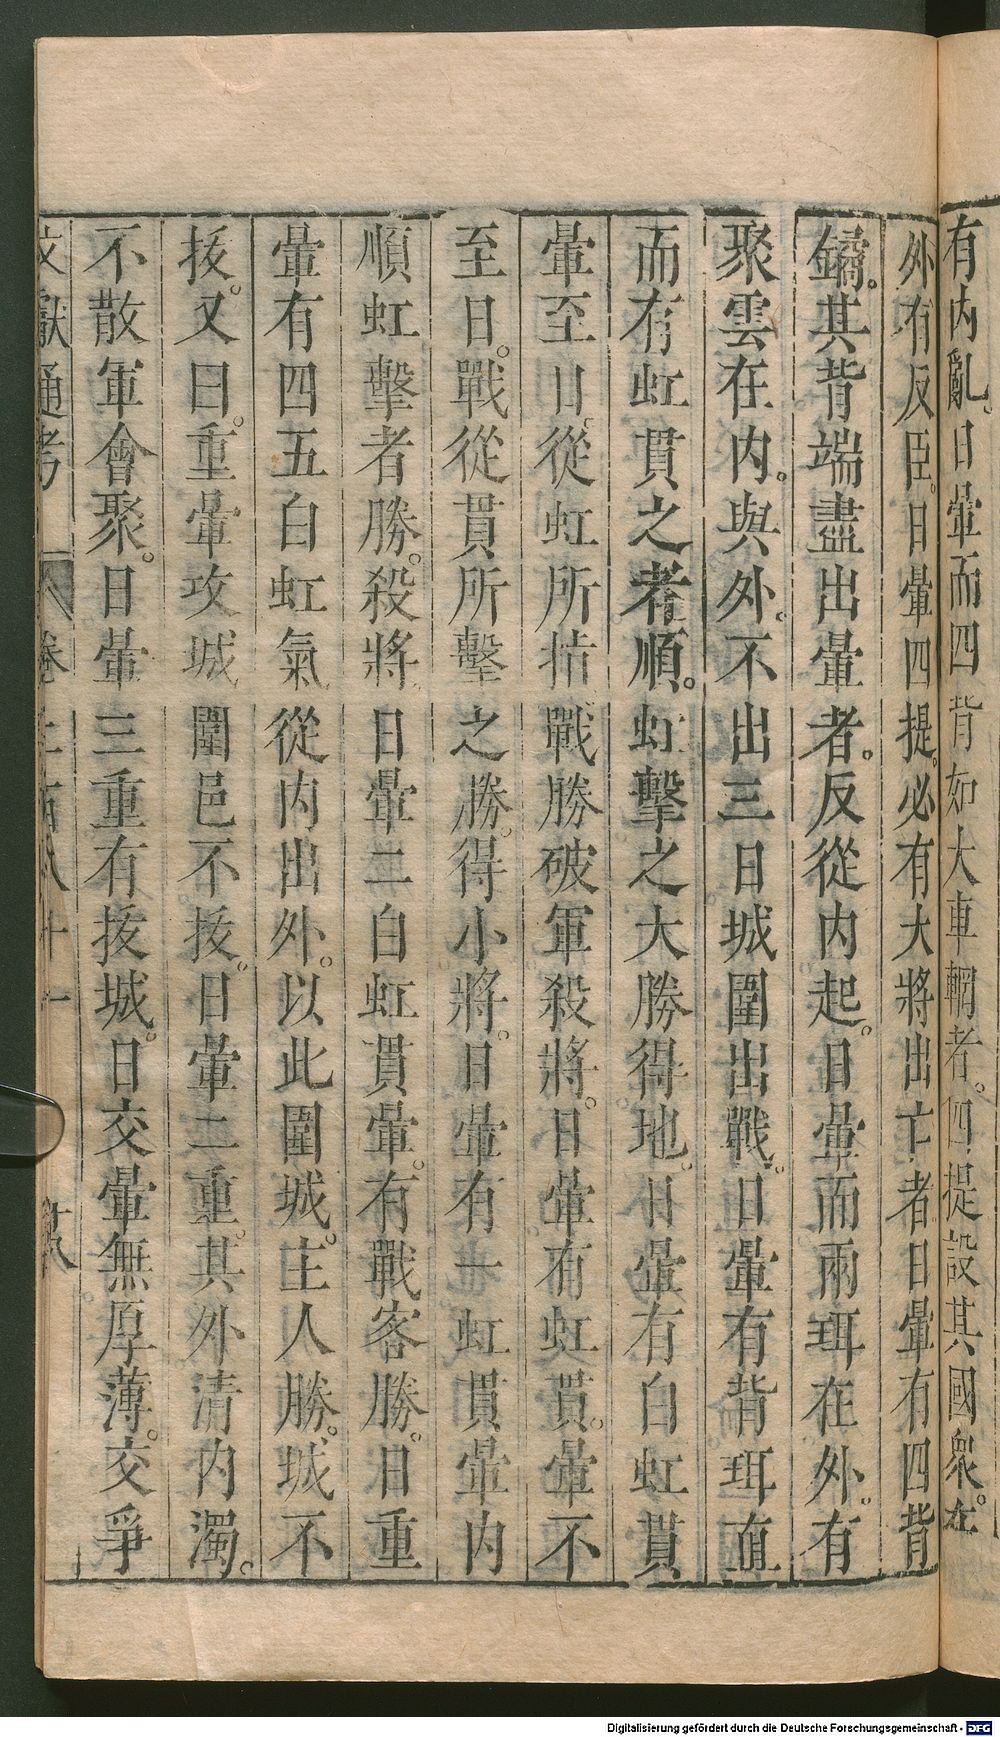 有内亂。日暈而四背如大車輞者。四提設其國衆。在
外有反臣。日暈四提。必有大將出亡者日暈有四背
鐍。其背端盡出暈者。反從内起。日暈而兩珥在外。有
聚雲在内。與外。不出三日城圍出戰。日暈有背珥直
而有虹貫之者順。虹擊之大勝得地。日暈有白虹貫
暈至日。從虹所指戰勝破軍殺將。日暈有虹貫。暈不
至日。戰從貫所擊之勝。得小將。日暈有一虹貫暈内
順虹擊者勝。殺將日暈二白虹貫暈。有戰客勝。日重
暈有四五白虹氣從内出外。以此圍城。主人勝。城不
拔。又曰。重暈攻城圍邑不拔。日暈二重。其外清内濁。
不散軍會聚。日暈三重有拔城。日交暈無厚薄。交爭
文獻通考 卷二百八十一 十八
Digitalisierung gefördert durch die Deutsche Forschungsgemeinschaft - DFG